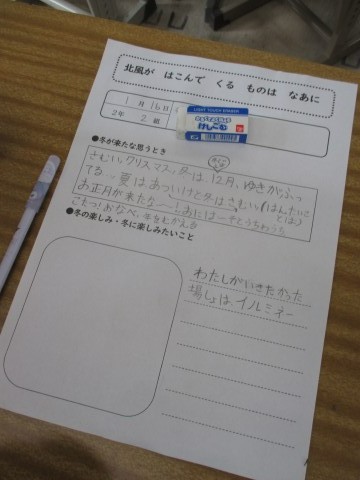 北風が はこんで くる ものは なあに
1月16日
2年 2組
LIGHT TOUCH ERASER
けしごむ
●冬が来たな思うとき
さむい。クリスマス。冬は、12月、ゆきがふっ
てる。夏はあついけど冬はさむい。(はんたいこ
とば)
お正月が来たな〜!
こたつ!おなべ、年をむかえる
●冬の楽しみ・冬に楽しみたいこと
わたしがいきたかった
場しょは イルミネー